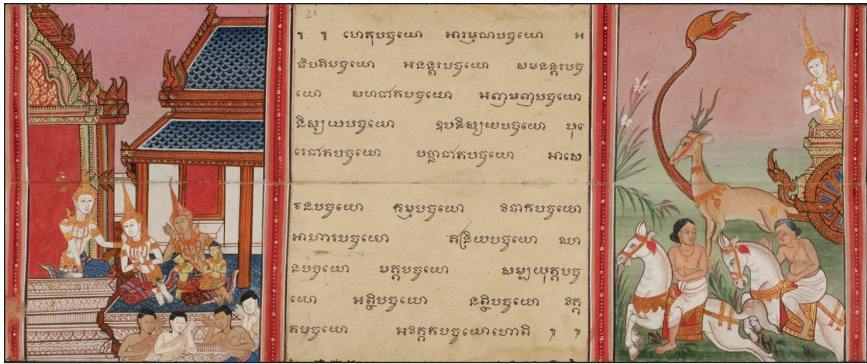 ៕ ៕ ហេតុបច្ចយោ អារម្មណបច្ចយោ អ
ធិបតិបច្ចយោ អនន្តរបច្ចយោ សមនន្តរបច្ច
យោ សហជាតបច្ចយោ អញមញបច្ចយោ
និស្សយបច្ចយោ ឧបនិស្សយបច្ចយោ បុ
រេជាតបច្ចយោ បច្ឆាជាតបច្ចយោ អាសេ
វនបច្ចយោ កម្មបច្ចយោ វិបាកបច្ចយោ
អាហារបច្ចយោ ឥន្ទ្រិយបច្ចយោ ឈា
នបច្ចយោ មគ្គបច្ចយោ សម្បយុត្តបច្ច
យោ អត្ថិបច្ចយោ នត្ថិបច្ចយោ វិគ្គ
តបច្ចយោ អវិគ្គតបច្ចយោហោតិ ៕ ៕